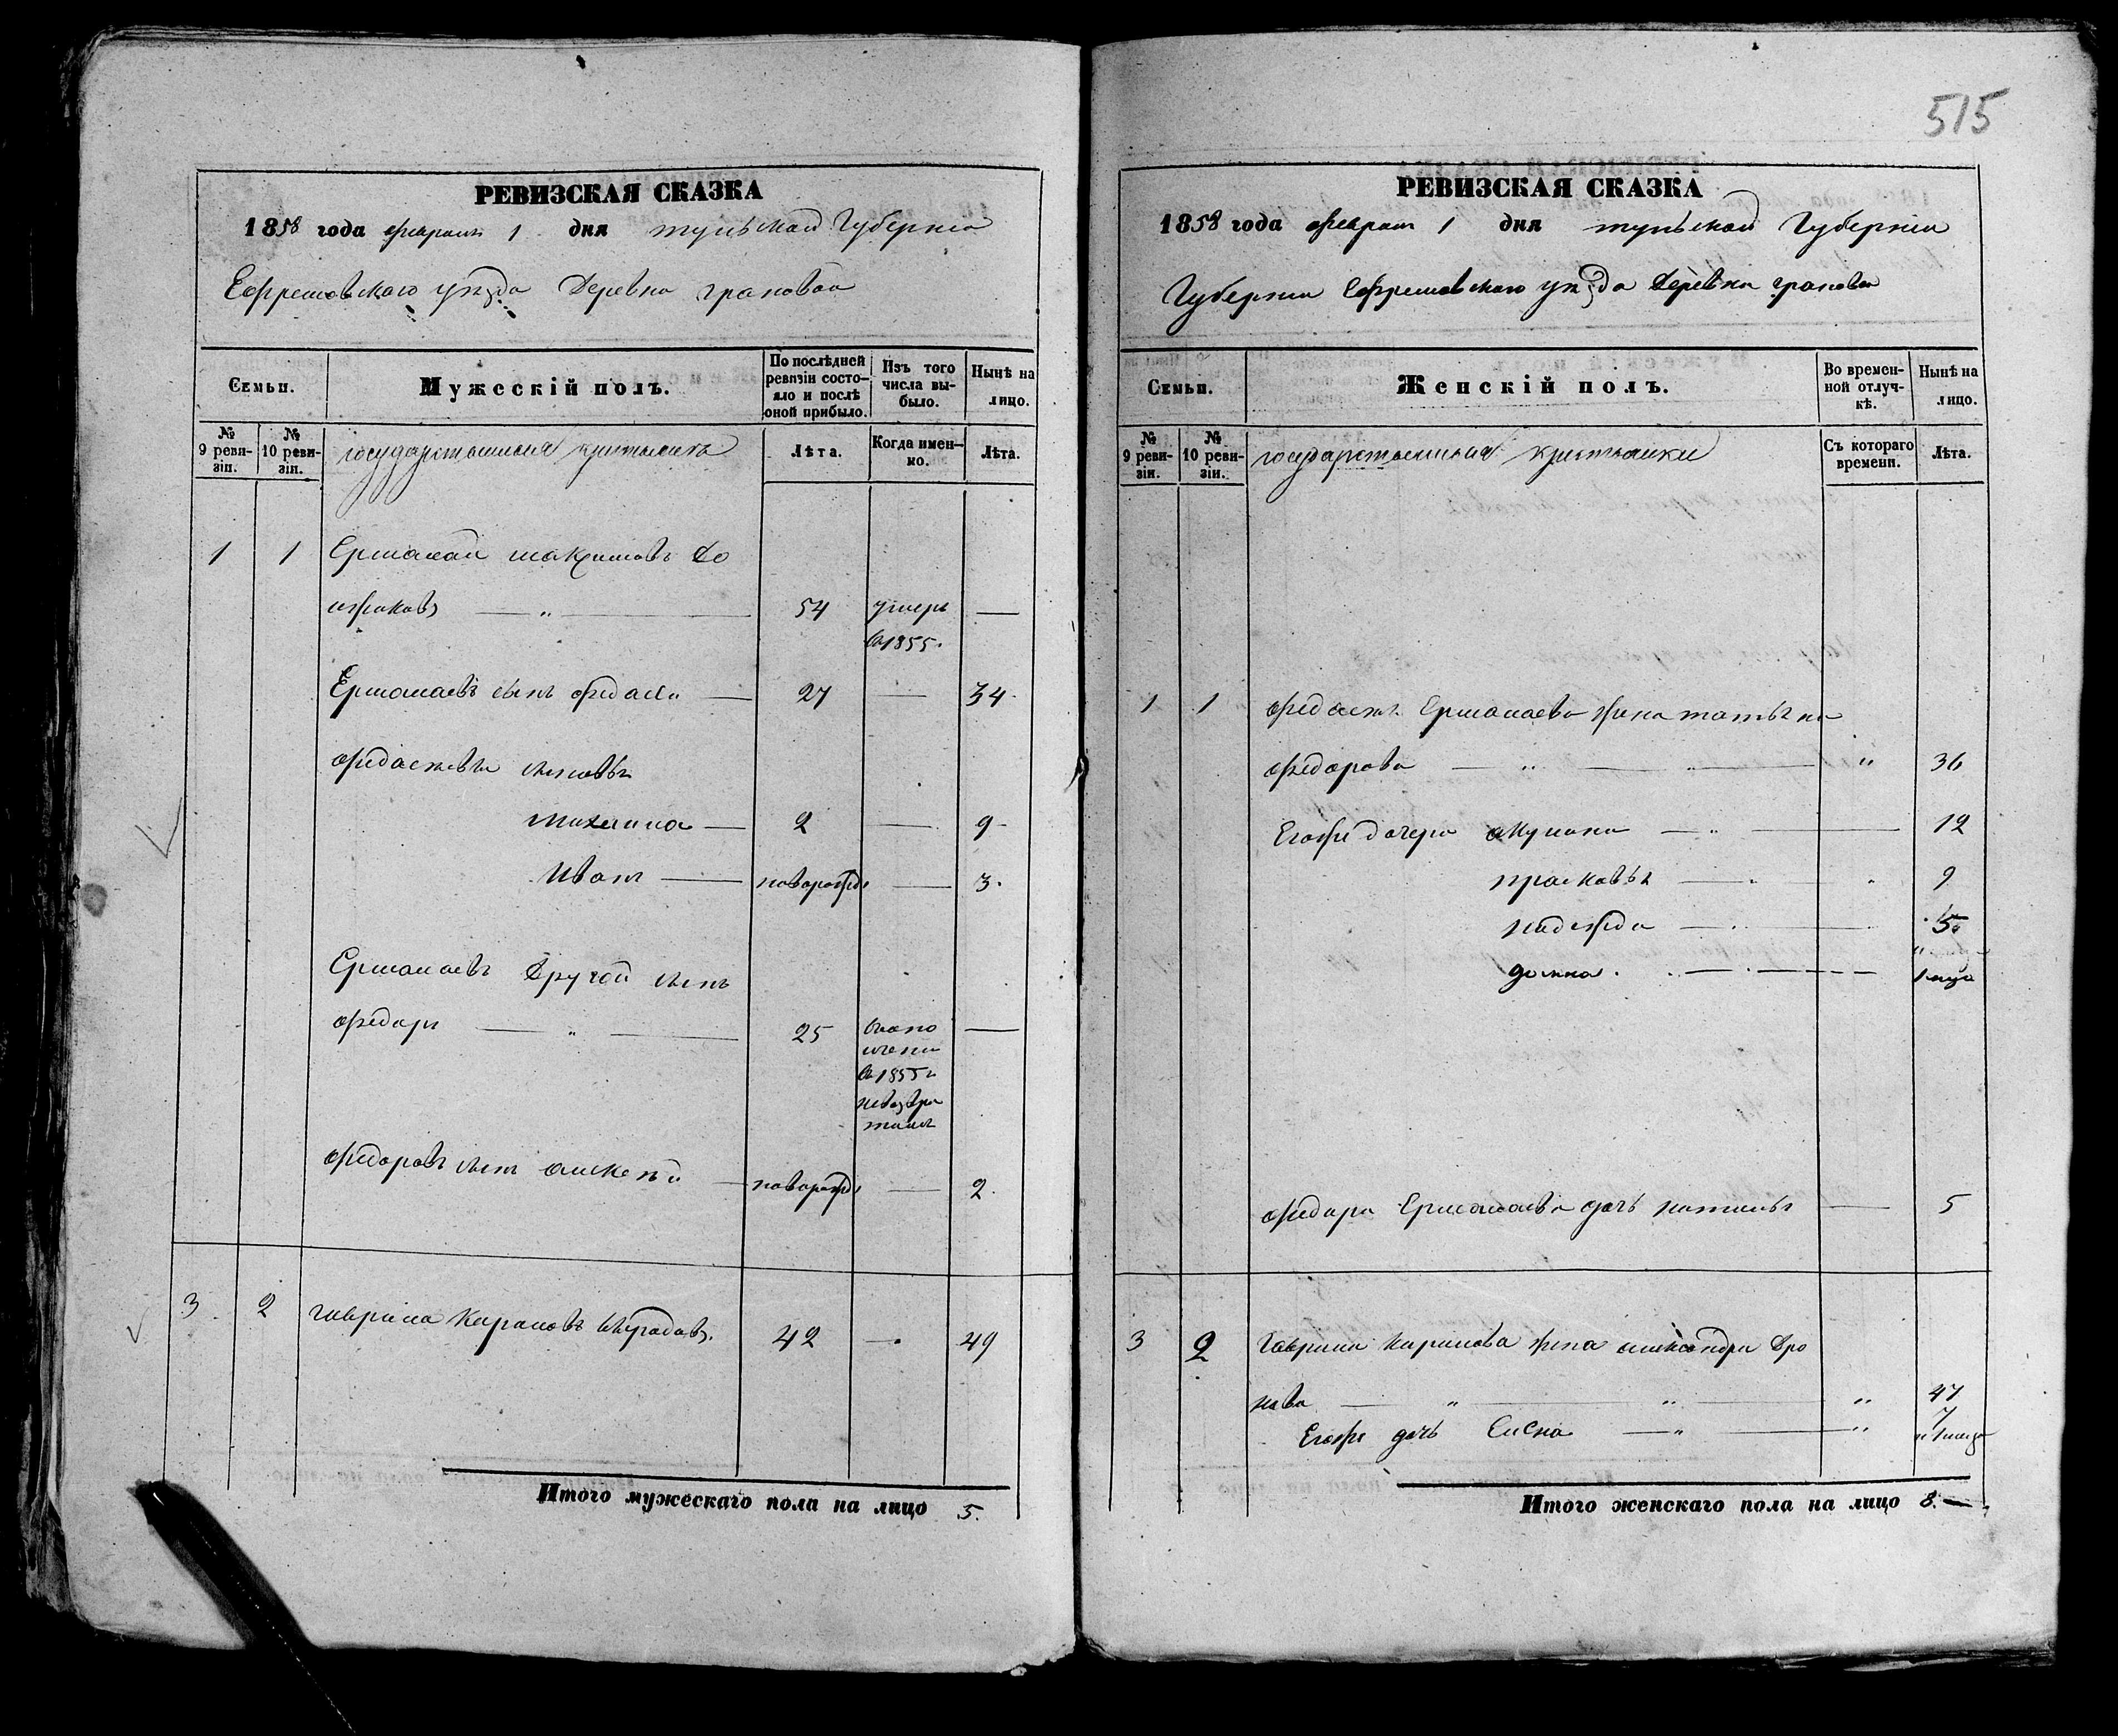 515
РЕВИЗСКАЯ СКАЗКА
1858 года февраля 1 дня тульской Губернiи
Ефремовскаго уѣзда Деревни грановой
Семьи.
Мужескiй полъ.
По послѣдней ревизiи состо-
яло и послѣ
оной прибыло.
Изъ того
числа вы-
было.
Нынѣ на
лицо.
№
9 реви-
зiи.
№
10 реви-
зiи.
государственныя крестьянъ
Лѣта.
Когда имен-
но.
Лѣта.
1 1 Ермолай
54 умеръ —
в 1855.
Ермолаевъ сынъ федосей — 27 — 34
федосеевы сыновья
михаила — 2 — 9
Иванъ — новорожде — 3.
Ермолаевъ Другой сынъ
федоръ — " — 25 —
в 1855 г
невозвра
тился
федоровъ сынъ алексей — новорожде — 2.
3 2 гаврила Кириловъ 42 — 49
Итого мужескаго пола на лицо 5.
РЕВИЗСКАЯ СКАЗКА
1858 года февраля 1 дня тульской Губернiи
Губернiи Ефремовскаго уѣзда Деревни грановой
Семьи.
Женскiй полъ.
Во времен-
ной отлуч-
кѣ.
Нынѣ на
лицо.
№
9 реви-
зiи.
№
10 реви-
зiи.
государственныя крестьянки
Съ котораго
времени.
Лѣта.
1 1 федосея Ермолаева жена татьяна
федорова — " — " — " 36
Егоже дочери акулина — " — 12
прасковья — 9
надежда — 5
домна
федора Ермолаева дочь наталья — 5
3 2 Гаврилы кирилова жена александра Дро
нова — " — " — " 47
Егоже дочь Елена — " — " 7
Итого женскаго пола на лицо 8. —